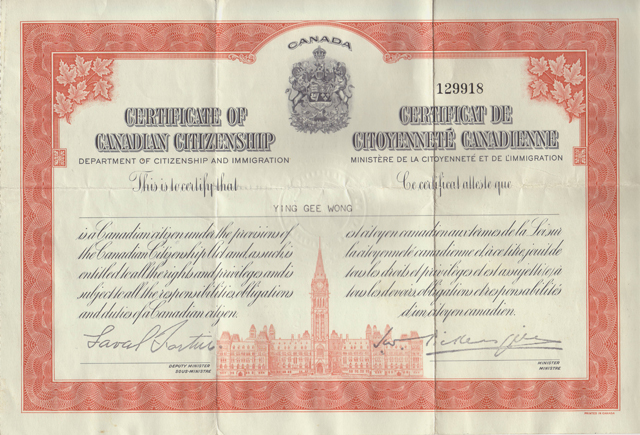 CANADA
129918
CERTIFICATE OF
CANADIAN CITIZENSHIP
DEPARTMENT OF CITIZENSHIP AND IMMIGRATION
This is to certify that
CERTIFICAT DE
CITOYENNETÉ CANADIENNE
MINISTÈRE DE LA CITOYENNETÉ ET DE L'IMMIGRATION
Ce certificat atteste que
YING GEE WONG
is a Canadian citizen under the provisions of
the Canadian Citizenship Act and, as such, is
entitled to all the rights and privileges and is
subject to all the responsibilities, obligations
and duties of a Canadian citizen.
est citoyen canadien aux termes de la Loi sur
la citoyenneté canadienne et, à ce titre, jouit de
tous les droits et privilèges et est assujetti(e) à
tous les devoirs, obligations et responsabilités
d'un citoyen canadien.
Laval Fortier
DEPUTY MINISTER
SOUS-MINISTRE
MINISTER
MINISTRE